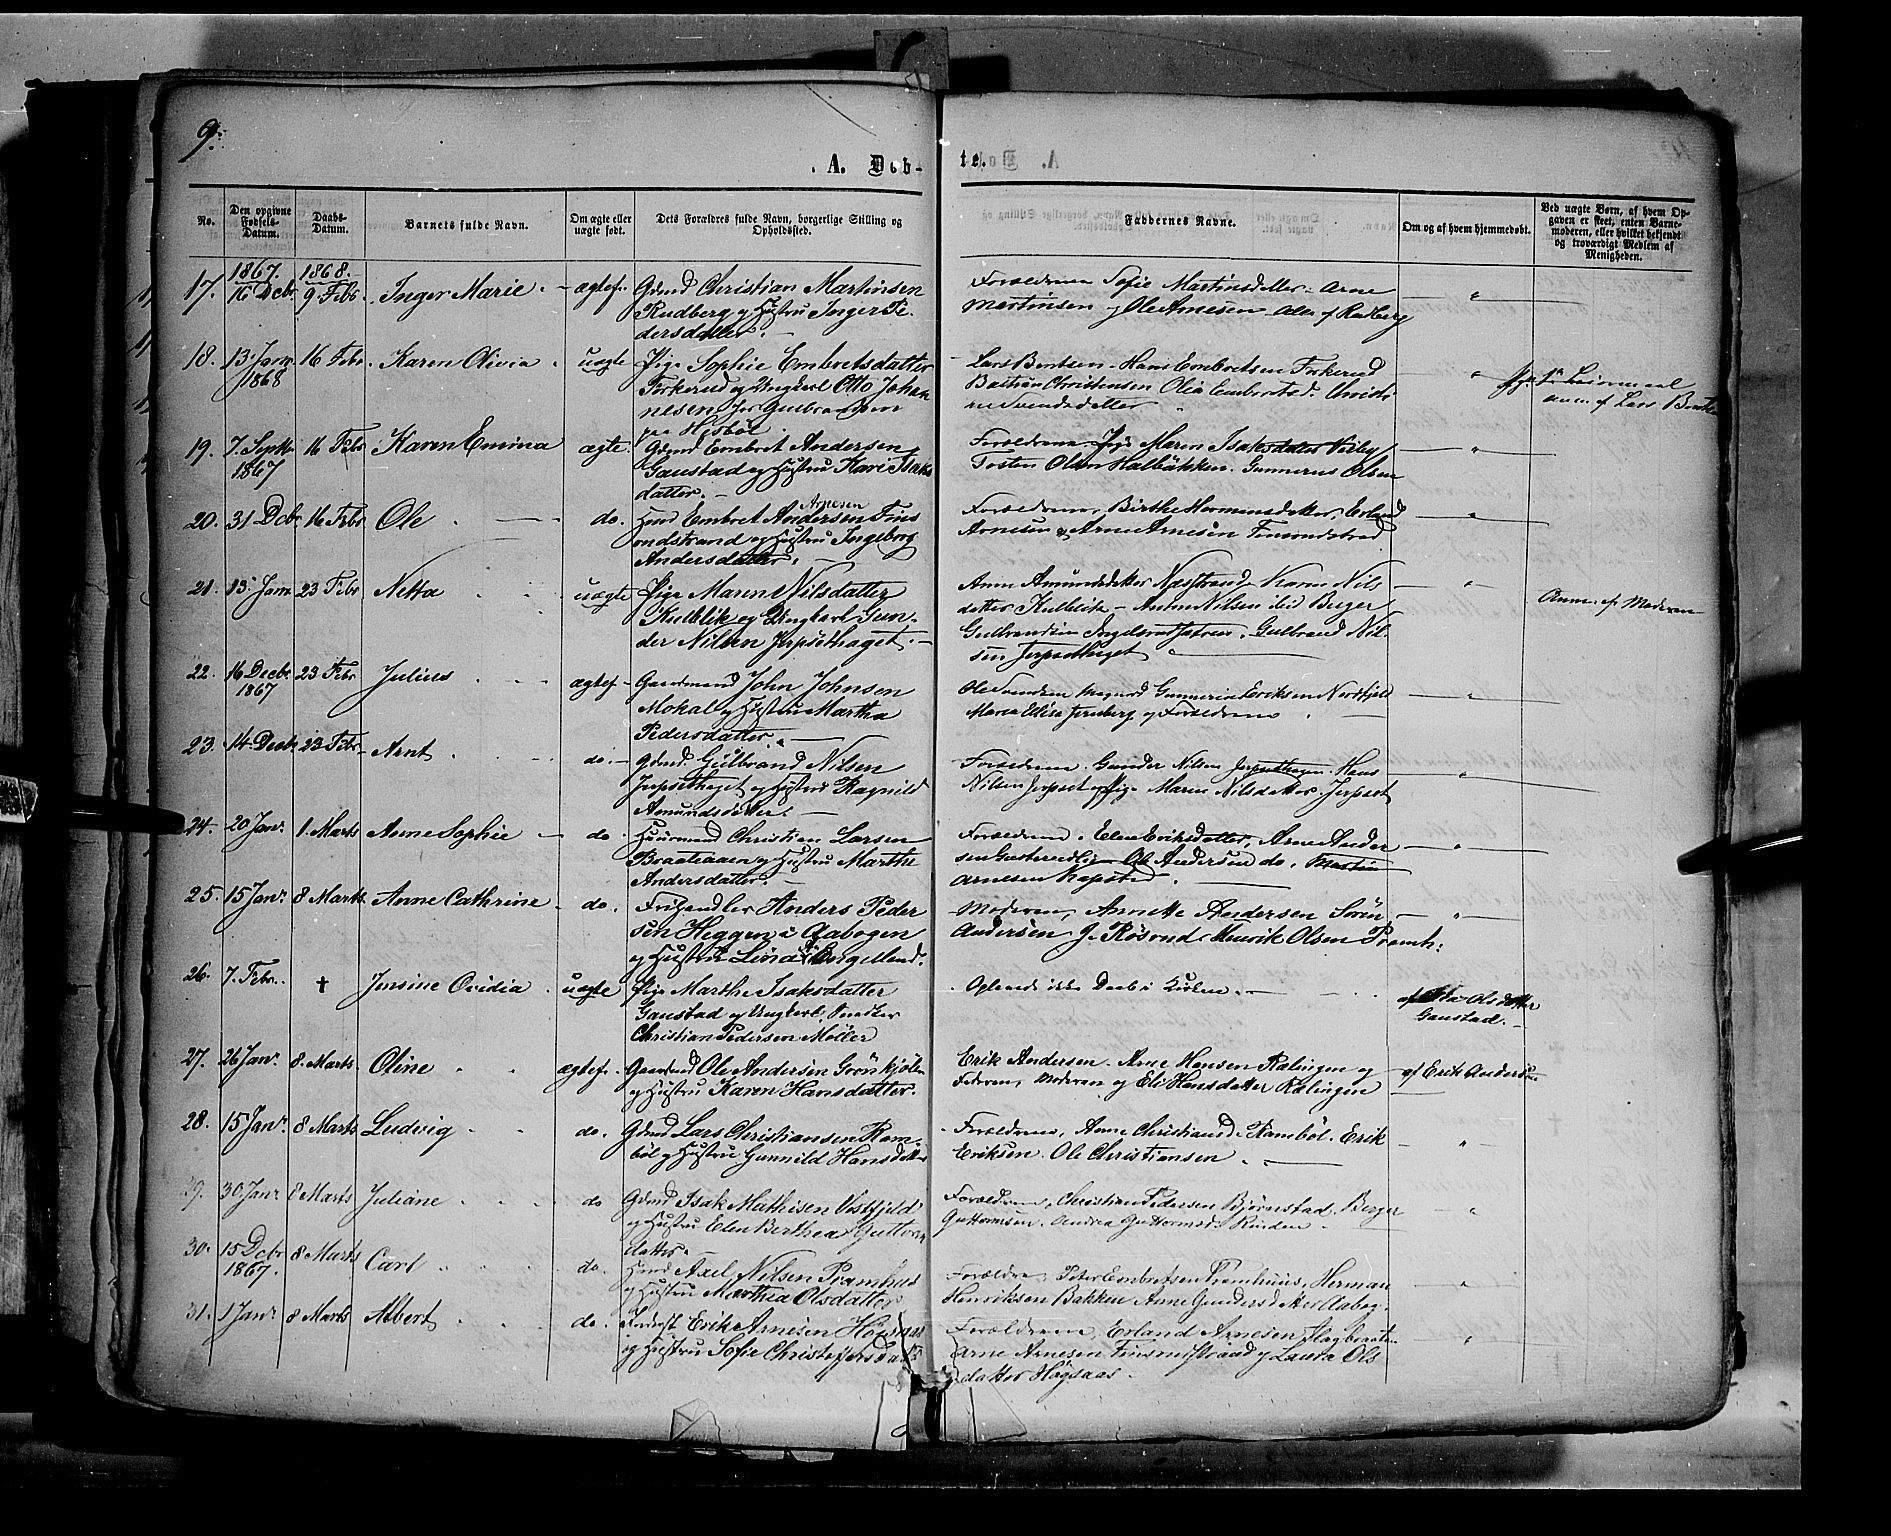 9.
A. Døb-
te.
No.
Den opgivne Fødsels-Datum.
Daabs-Datum.
Barnets fulde Navn.
Om ægte eller uægte født.
Dets Forældres fulde Navn, borgerlige Stilling og Opholdssted.
Faddernes Navne.
Om og af hvem hjemmedøbt.
Ved uægte Børn, af hvem Opgaven er skeet, enten Barnemoderen, eller hvilket bekjendt og troværdigt Medlem af Menigheden.
17. 1867. 16 Decbr 1868. 9. Febr. Inger Marie ægtef. Gdmd Christian Martinsen
Rudberg og Hustru Inger Pe-
dersdatter.
Forældrene Sofie Martinsdatter. Arne
Martinsen og Ole Arnesen alle af Rudberg
18. 13 Janr 1868 16 Febr. Karen Olivia uægte Pige Sophie Embretsdatter
Torkerud og Ungkarl Otto Johan-
nesen
paa Hesbøl
Lars Bentsen. Hans Embretsen Torkerud
Bastian Christensen Olia Embretsd. Christi
ne Svendsdatter
anm. af Lars Bentsen
19. 7. Septbr 1867 16 Febr Karen Emma ægte. Gdmd Embret Andersen
Gaustad og Hustru Kari Isaks
datter.
Forældrene Pige Maren Isaksdatter Nerby
Tosten Olsen Halbakken. Gunnerus Olsen
20. 31 Dcbr 16 Febr Ole do. Hmd Embret Andersen Arnesen
strand og Hustru Ingeborg
Andersdatter.
Forældrene, Birthe Hermansdatter, Erland
Arnesen & Arne Arnesen
21. 13 Janr 23 Febr Netta uægte Pige Maren Nilsdatter
Kulblik og Ungkarl Gun-
der Nilsen Jerpsethaget.
Anne Amundsdatter Næstrand Karen Nils
datter Kulblik Anne Nilsen ibid Berger
Gulbrandsen Gulbrand Nil-
sen Jerpsethaget
Anm. af Moderen
22. 16 Decbr 1867 23 Febr Julius ægtef. Gaardmand John Johnsen
Mokal og Hustru Martha
Pedersdatter.
Ole Svendsen Gunnerius Eriksen Nordfjeld
Maren Elise og Forældrene
23. 14 Decbr 23 Febr Arnt do. Gdmd. Gulbrand Nilsen
Jerpsethaget og Hustru Ragnild
Amundsdatter.
Forældrene. Gunder Nilsen Jerpsethagen. Hans
Nilsen Jerpset og Pige Maren Nilsdatter. Jerpset
24. 20 Janr. 1. Marts Anne Sophie do. Huusmand Christian Larsen
Braataaen og Hustru Marthe
Andersdatter.
Forældrene. Elene Eriksdatter, Arne Ander
sen Ole Andersen do. Martin
Arnesen
25. 15 Janr. 8 Marts Anne Cathrine do. Frihandler Anders Peder
sen Heggen i Aabogen
og Hustru Lina Engelland.
Moderen, Annette Andersen Sören
Andersen G. Røsvad Henrik Olsen Pramh:
26. 7. Febr. † Jensine Ovidia uægte Pige Marthe Isaksdatter
Gaustad og Ungkarl
Christian Pedersen Møller
Oplæst ikke Daab i Kirken.
af Olsdatter
Gaustad.
27. 26 Janr. 8. Marts Oline ægtef. Gaardmd Ole Andersen Grönkjölen
og Hustru Karen Hansdatter.
Erik Andersen. Arne Hansen Kalingen og
Faderen, Moderen og Eli Hansdatter Kalingen
af Erik Andersen
28. 15 Janr. 8 Marts Ludvig do. Gdmd Lars Christiansen Ram-
böl og Hustru Gunnild Hansdatter
Forældrene, Anne Christiansd. Ramböl. Erik
Eriksen. Ole Christiansen
29. 30 Janr 8 Marts Juliane do Gdmd Isak Mathisen Vestfjeld
og Hustru Elen Berthea Guttorms
datter.
Forældrene, Christian Pedersen Bjørnstad. Berger
Guttormsen. Andrea Guttormsd. Rinden
30. 15 Dcbr 1867. 8 Marts Carl do. Hmd Axel Nilsen Pramhus
og Hustru Marthea Olsdatter
Forældre. Peter Embretsen Pramhuus, Herman
Henriksen Bakken Anne Gundersdatter Aabog.
31. 1 Janr. 8 Marts Albert do. Erik Arnesen
og Hustru Sofie Christoffersdatter
Forældrene, Erland Arnesen Flagbraaten
Arne Arnesen og Laura Ols
datter Högsaas.